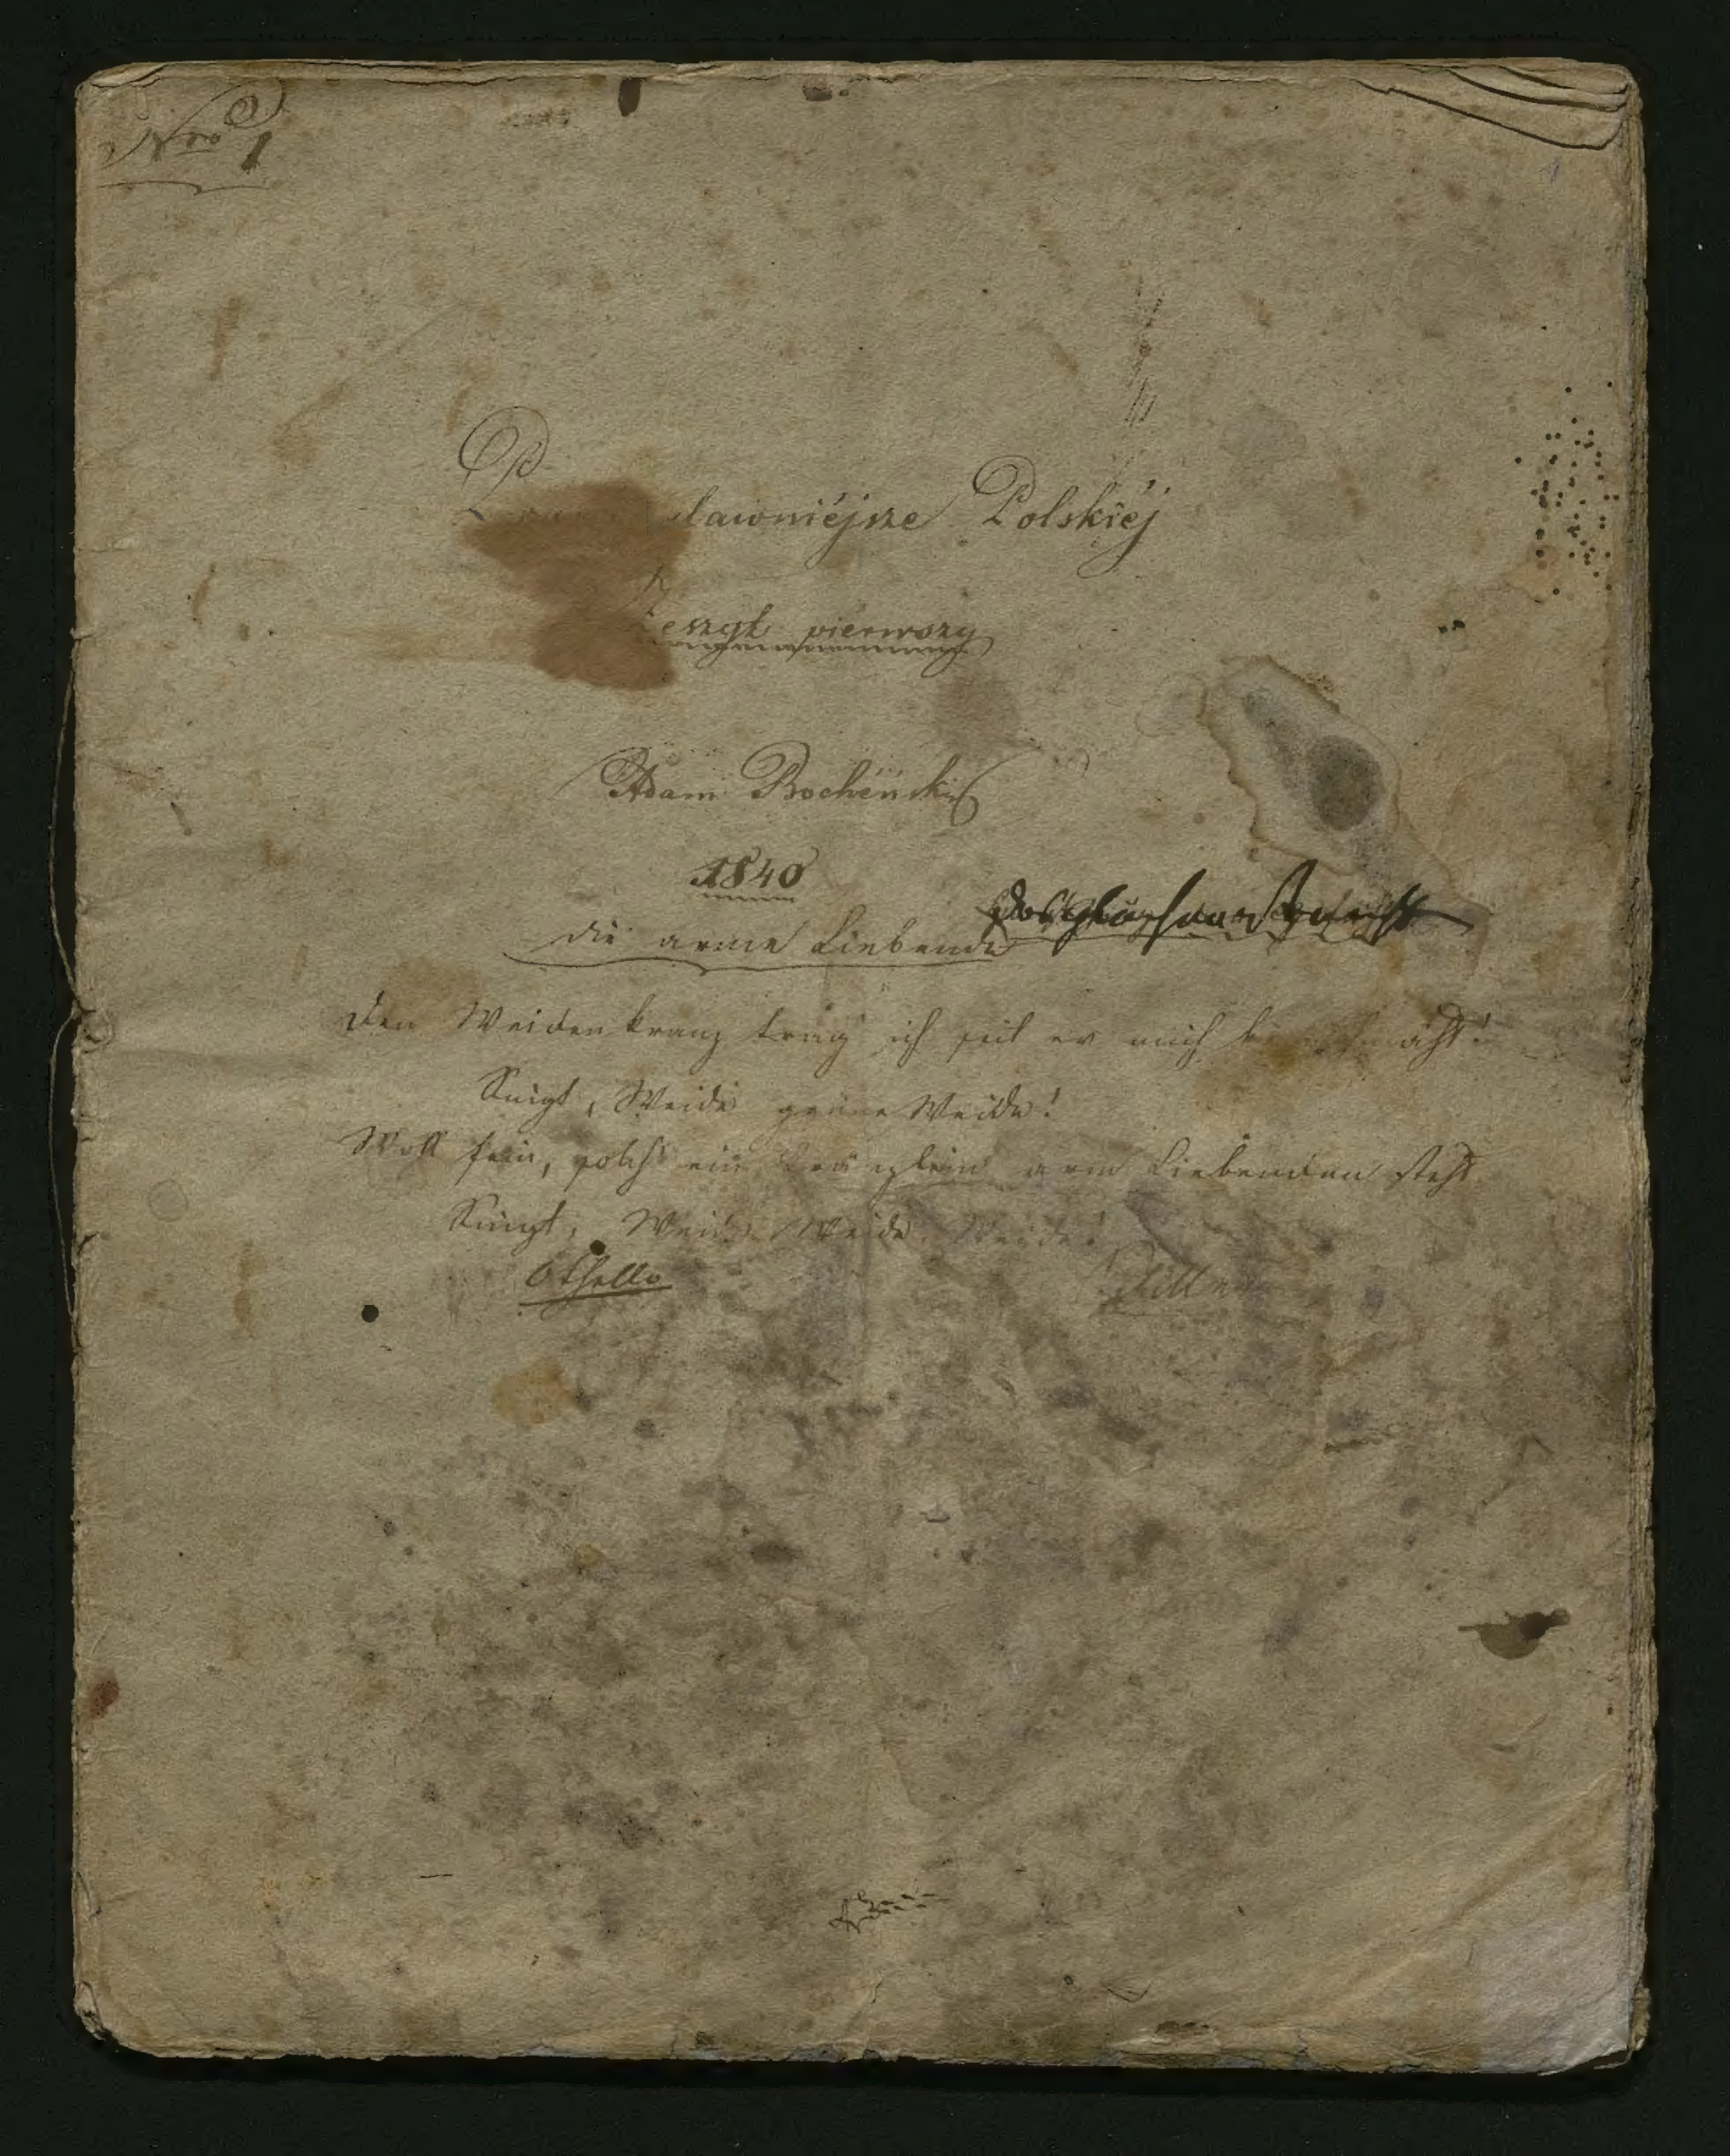 Nro 1
1
sławniéjsze Polskiéj
Zeszyt piérwszy
Adam Bocheński
1840
Die arme Liebende
Den Weidenkranz trag ich seit er mich
Singt, Weide grüne Weide!
Wohl fein, solch ein Kränzlein arm Liebenden steht
Singt, Weide Weide Weide!
Othello